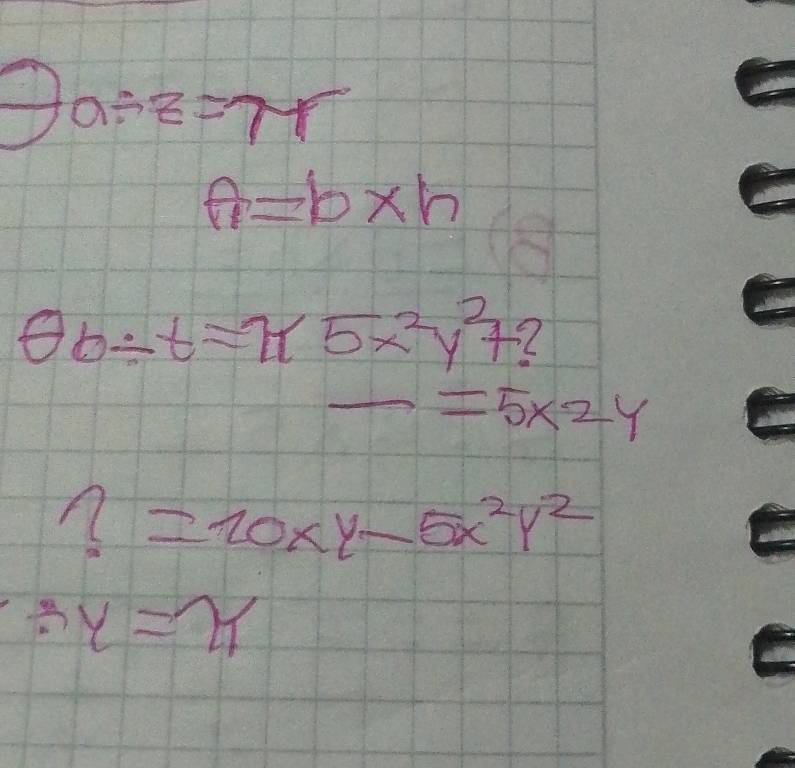 θa÷z=π
A=b×h
θb÷t=π 5x²y²+?
— =5x2y
? =10xy-5x²y²
÷y=π